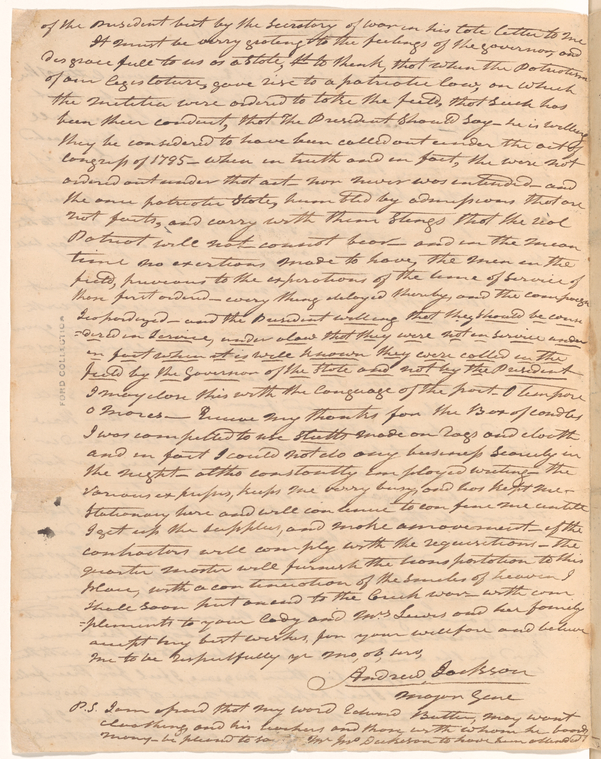 of the President but by the Secretary of war in his late letter to me
It must be very grating to the feelings of the governor, and
disgracefull to us as a State, to think, that when the Patriotism
of our Legislature, gave rise to a patriotic law, on which
the militia were ordered to take the field, that such has
been their conduct, that the President should say— he is willing
they be considered to have been called out under the act of
congress of 1795— when in truth and in fact, the were not
ordered out under that act— nor never was intended— and
the once patriotic State, humbled by admissions that are
not facts, and carry with them stings that the real
Patriot will not cannot bear— and in the mean
time no exertions made to have, the men in the
field, previous to the expirations of the time of service of
those first ordered— every thing delayed thereby, and the campaign
Jeopardized— and the President willing that they should be cons
=dered in Service, under a law that they were not in Service under
in fact when it is well known they were called in the
field by the Governor of the State and not by the President
I may close this with the Language of the poet— O tempore
o mores— Receive my thanks for the Box of candles
I was compelled to use made on rags and cloth
and in fact I could not do any business scarcely in
the night— altho constantly employed writing— the
various expresses, keeps me very busy, and has kept me
Stationary here and will continue to confine me untill
I get up the supplies, and make a movement— if the
contractors will comply with the requisitions— the
quarter master will furnish the transportation to this
place, with a continuation of the smiles of heaven I
shall soon put an end to the Creek war— with com
=plements to your Lady and Mrs Lewis and her family
accept my best wishes, for your wellfare and believe
me to be respectfully yr mo, ob, serv,
Andrew Jackson
Major Genl
P.S. I am afraid that my ward Edward Butler, may want
cloathing, and his teachers and those with whom he boards
money— be pleased to Mr Jno, Dickeson to have him attended to
FORD COLLECTION